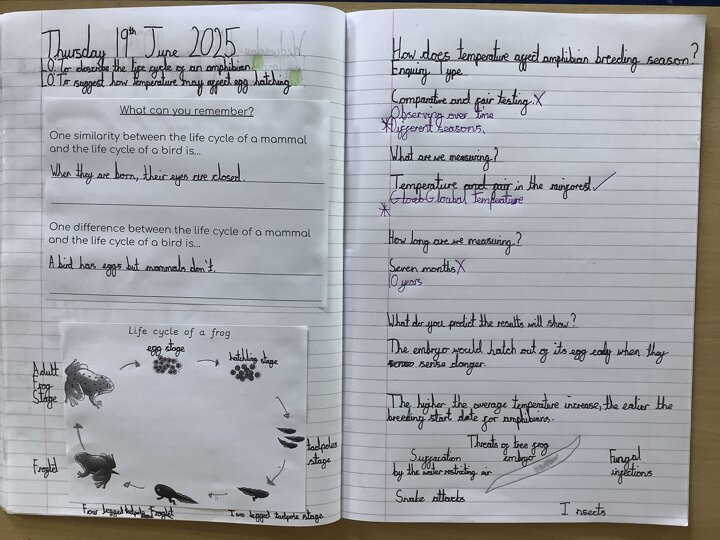 Thursday 19th June 2025
LO. To describe the life cycle of an amphibian.
LO. To suggest how temperature may affect egg hatching.
What can you remember?
One similarity between the life cycle of a mammal
and the life cycle of a bird is...
When they are born, their eyes are closed.
One difference between the life cycle of a mammal
and the life cycle of a bird is...
A bird has eggs but mammals don't.
Life cycle of a frog
egg stage
hatchling stage
Adult
Frog
Stage
tadpoles
stage
Froglet
Four legged tadpole Froglet
Two legged tadpole stage
How does temperature affect amphibian breeding season?
Enquiry Type
Comparative and fair testing. X
Observing over time
*Different seasons.
What are we measuring?
Temperature and fair in the rainforest ✓
Gloab Gloabal Temperature
*
How long are we measuring?
Seven months X
10 years
What do you predict the results will show?
The embryo would hatch out of its egg ealy when they
sense danger.
The higher the average temperature increase, the ealier the
breeding start date for amphibians.
Threats of tree frog
embryo
Suffocation
by the water restricting air
Fungal
infections
Snake attacks
Insects